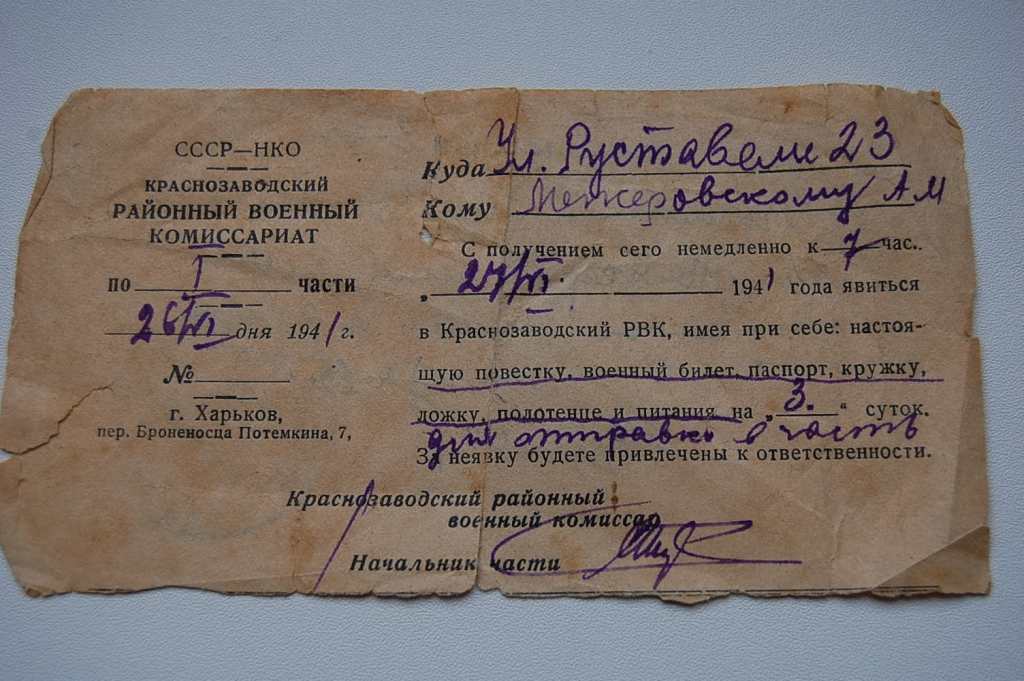 СССР—НКО
КРАСНОЗАВОДСКИЙ
РАЙОННЫЙ ВОЕННЫЙ
КОМИССАРИАТ
по I части
26/VI дня 1941 г.
№
г. Харьков,
пер. Броненосца Потемкина, 7,
Куда Ул. Руставели 23
Кому Межеровскому А М
С получением сего немедленно к 7 час.
„ 27/VI. 1941 года явиться
в Краснозаводский РВК, имея при себе: настоя-
щую повестку, военный билет, паспорт, кружку,
ложку, полотенце и питания на „ 3. “ суток.
для отправки в часть
За неявку будете привлечены к ответственности.
Краснозаводский районный
военный комиссар
Начальник части